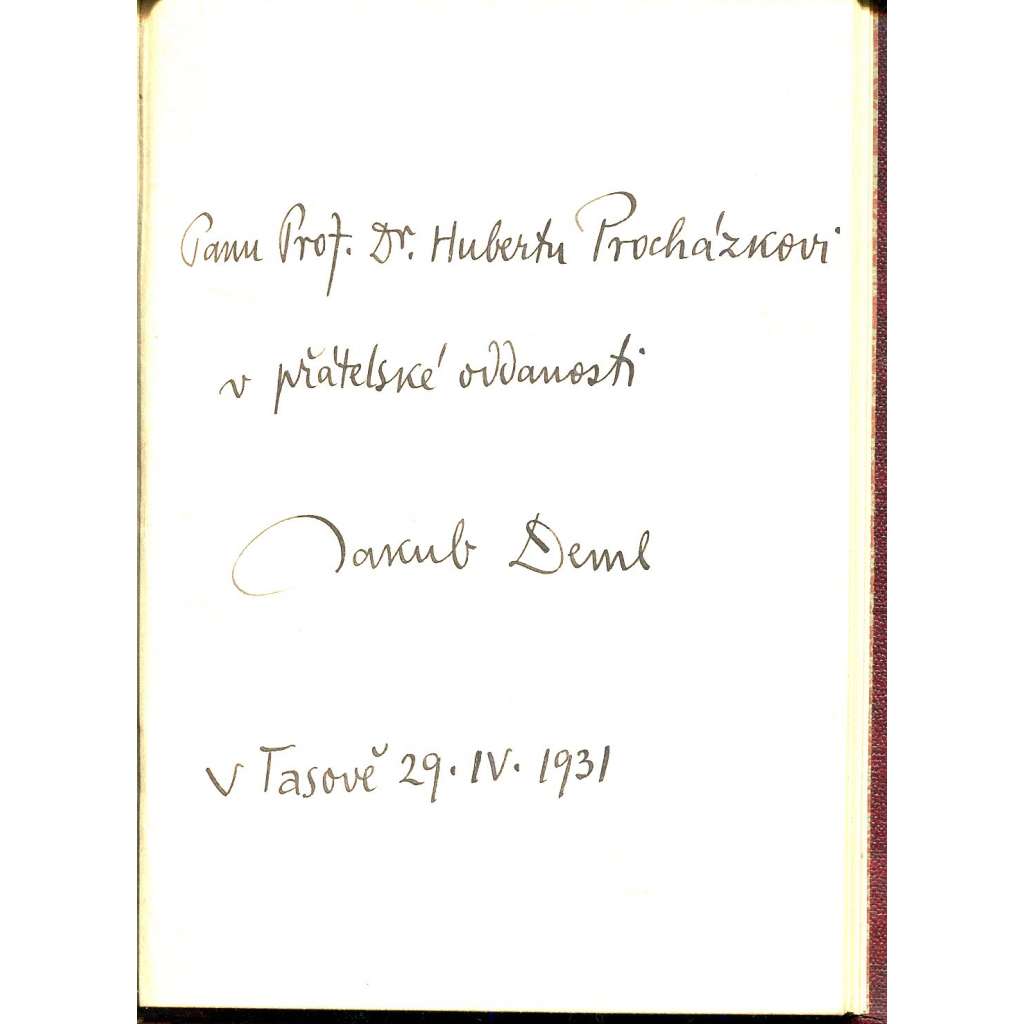 Panu Prof. Dr. Hubertu Procházkovi
v přátelské oddanosti
Jakub Deml
V Tasově 29. IV. 1931